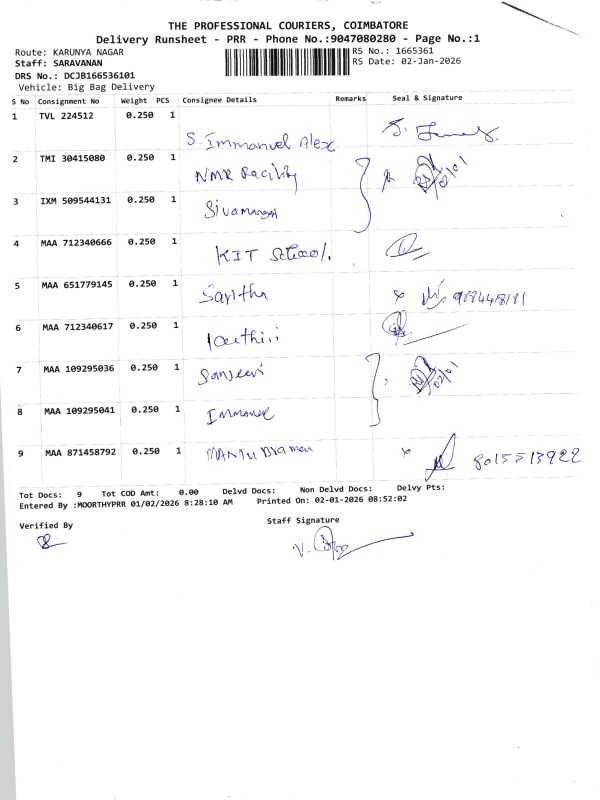 THE PROFESSIONAL COURIERS, COIMBATORE
Delivery Runsheet - PRR - Phone No.:9047080280 - Page No.:1
Route: KARUNYA NAGAR
RS No.: 1665361
Staff: SARAVANAN
RS Date: 02-Jan-2026
DRS No.: DCJB166536101
Vehicle: Big Bag Delivery
S No Consignment No Weight PCS Consignee Details Remarks Seal & Signature
1 TVL 224512 0.250 1 S. Immanuel Alex
2 TMI 30415080 0.250 1 NMR Facility 02/01
3 IXM 509544131 0.250 1 Sivamangai
4 MAA 712340666 0.250 1 KIT School.
5 MAA 651779145 0.250 1 Saritha
6 MAA 712340617 0.250 1
7 MAA 109295036 0.250 1 Sanjeevi 02/01
8 MAA 109295041 0.250 1 Immanuel
9 MAA 871458792 0.250 1 8015513922
Tot Docs: 9 Tot COD Amt: 0.00 Delvd Docs: Non Delvd Docs: Delvy Pts:
Entered By :MOORTHYPRR 01/02/2026 8:28:10 AM Printed On: 02-01-2026 08:52:02
Verified By
Staff Signature